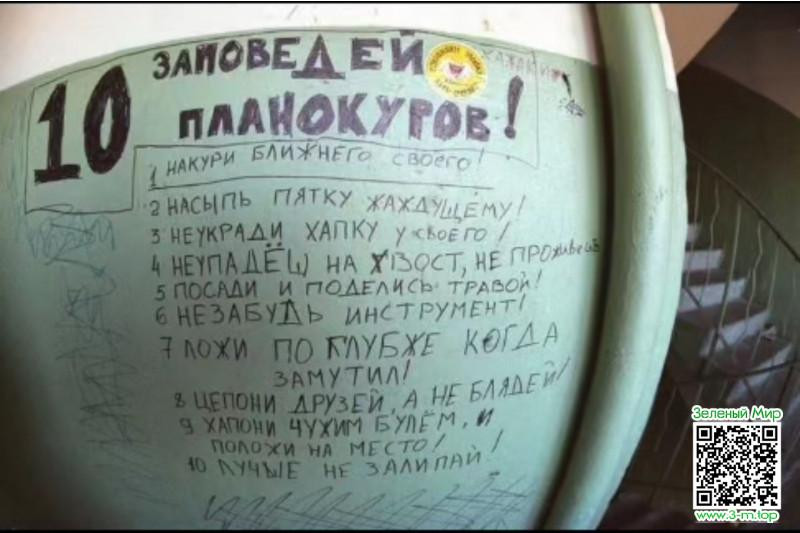 10 ЗАПОВЕДЕЙ
ПЛАНОКУРОВ!
1 НАКУРИ БЛИЖНЕГО СВОЕГО!
2 НАСЫПЬ ПЯТКУ ЖАЖДУЩЕМУ!
3 НЕУКРАДИ ХАПКУ У СВОЕГО!
4 НЕУПАДЁШ НА ХВОСТ, НЕ ПРОЖИВЕШЬ
5 ПОСАДИ И ПОДЕЛИСЬ ТРАВОЙ!
6 НЕЗАБУДЬ ИНСТРУМЕНТ!
7 ЛОЖИ ПО ГЛУБЖЕ КОГДА
ЗАМУТИЛ!
8 ЦЕПОНИ ДРУЗЕЙ, А НЕ БЛЯДЕЙ!
9 ХАПОНИ ЧУЖИМ БУЛЁМ, И
ПОЛОЖИ НА МЕСТО!
10 ЛУЧЫЕ НЕ ЗАЛИПАЙ!
Зеленый Мир
www.3-m.top